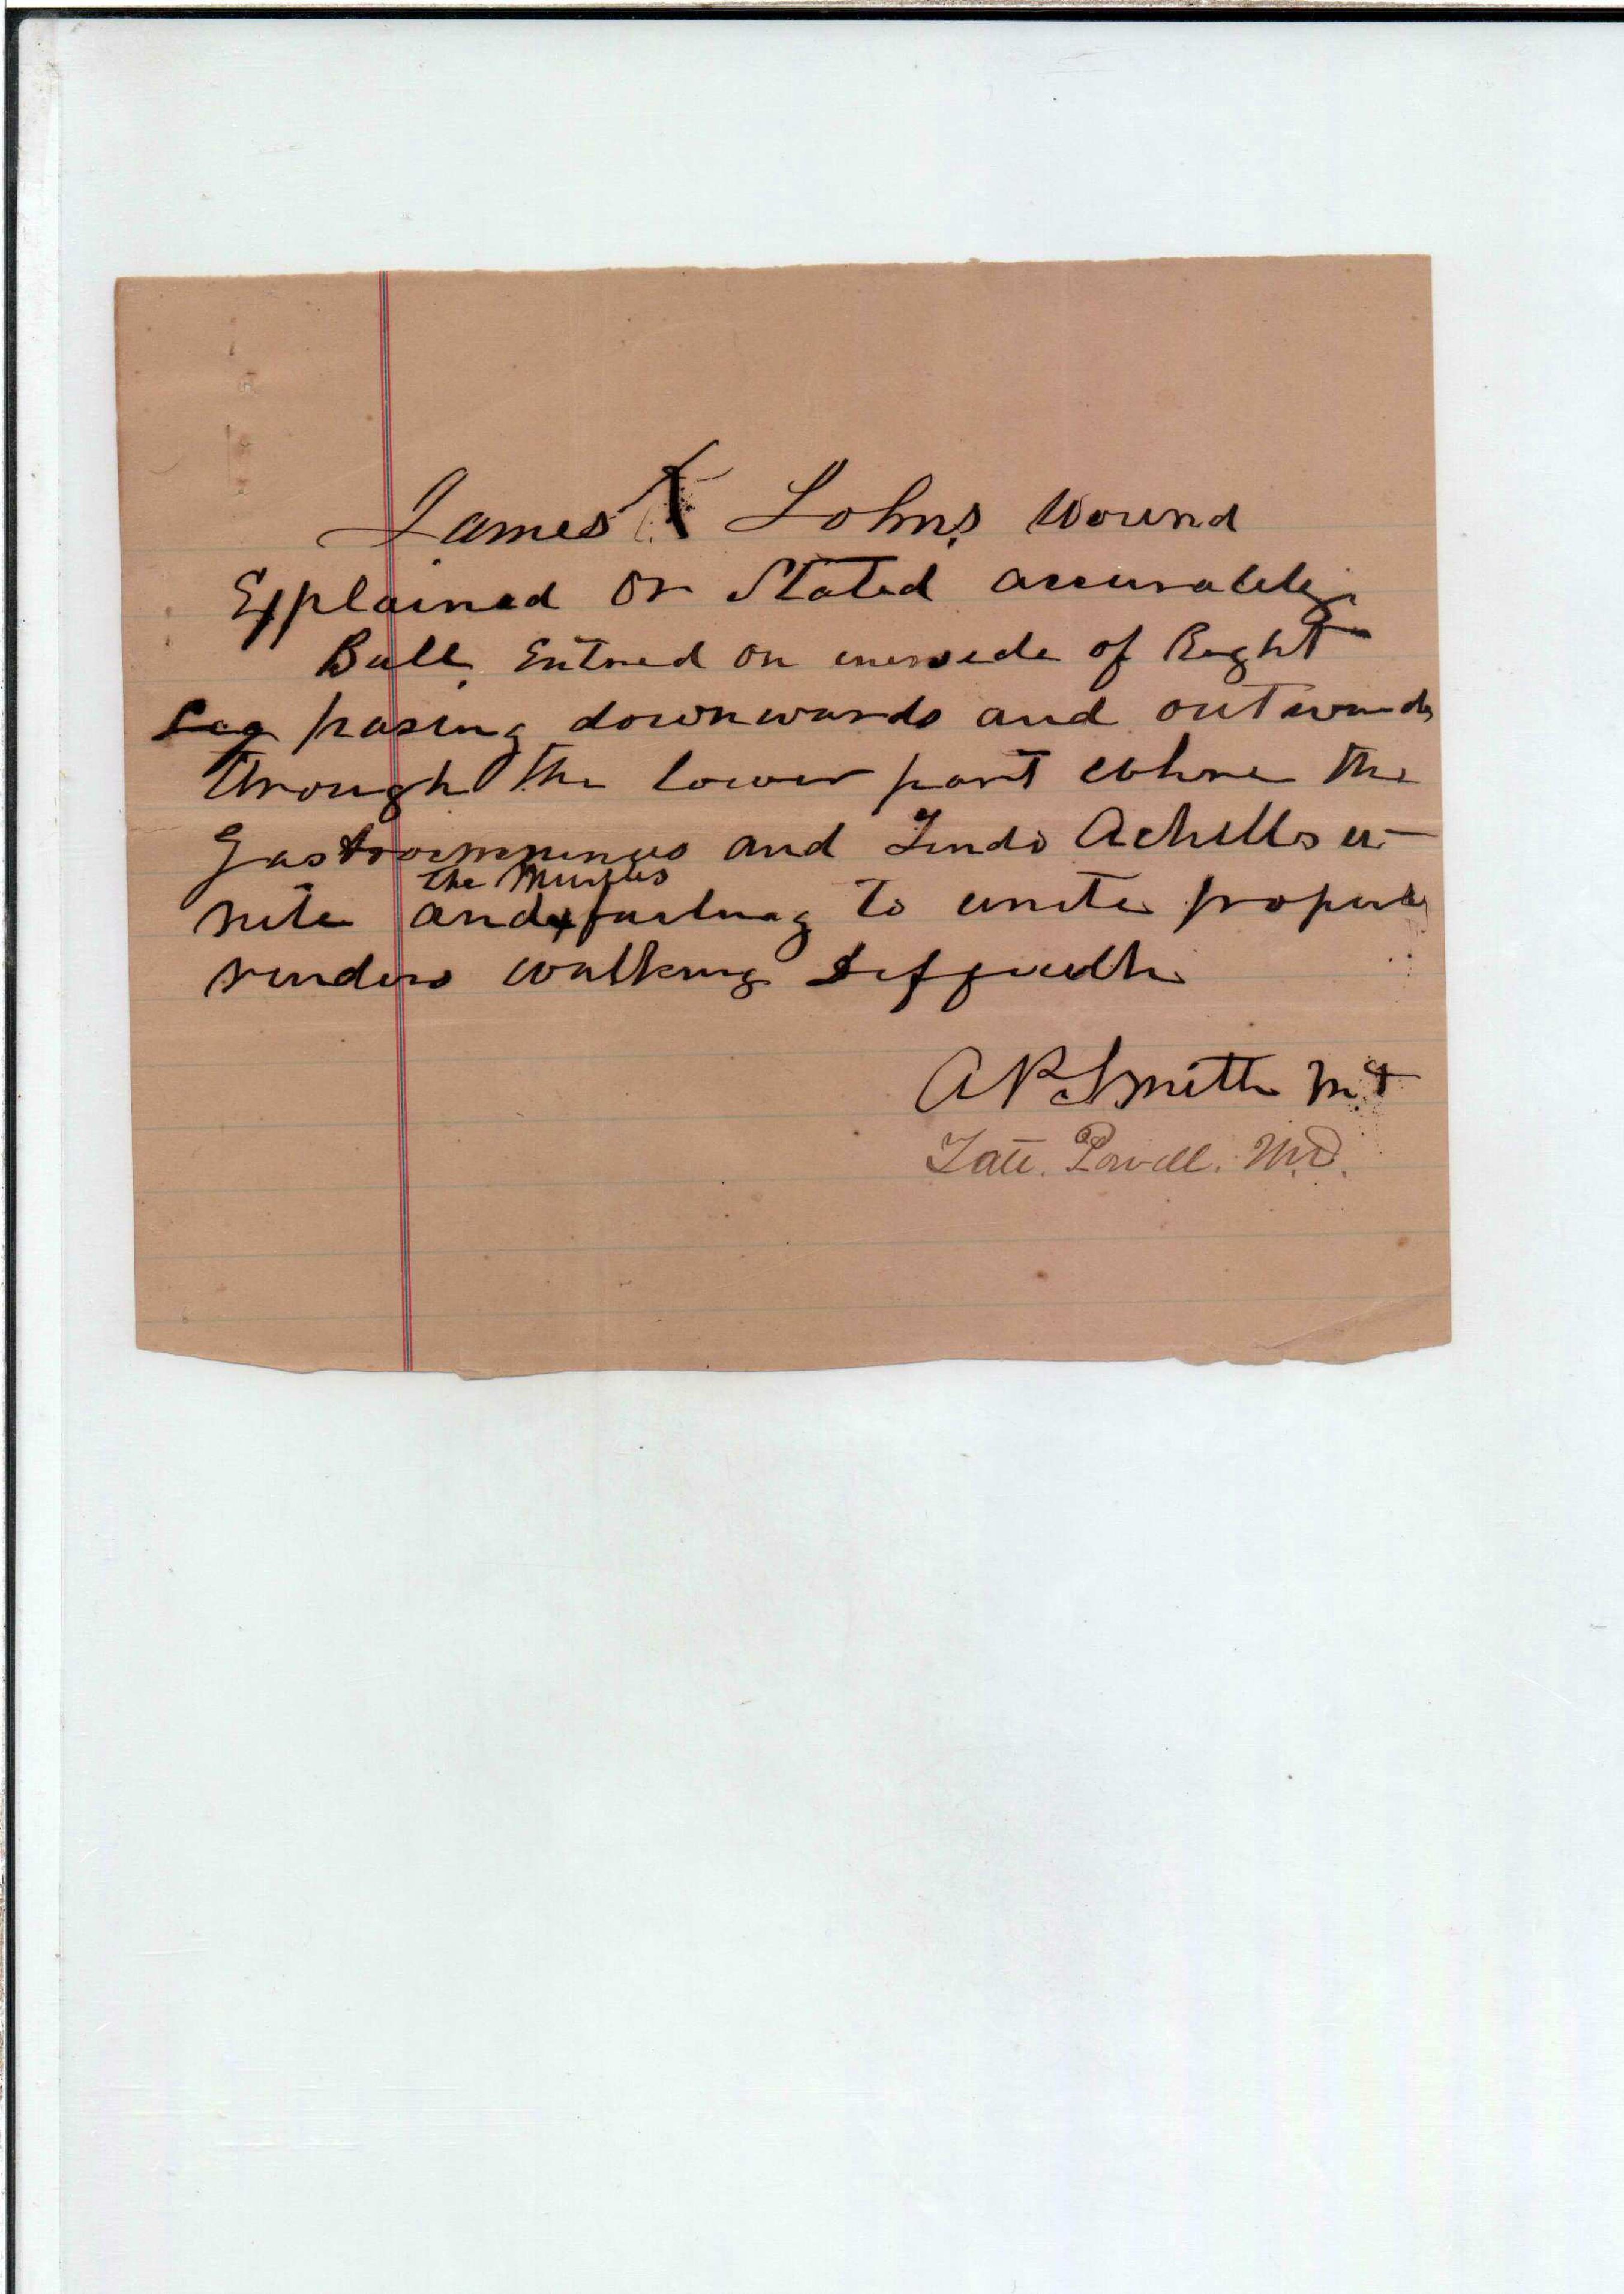 James Johns wound
Explained or Stated accurately
Ball Entred on inerside of Right
Leg pasing downwards and outwards
through the lower part where the
Gastrocnemenus and Tendo Achilles u-
the Musles
nite and failing to unite properly
renders walking difficult
A P Smith M.D
Tate. Powell. M.D.